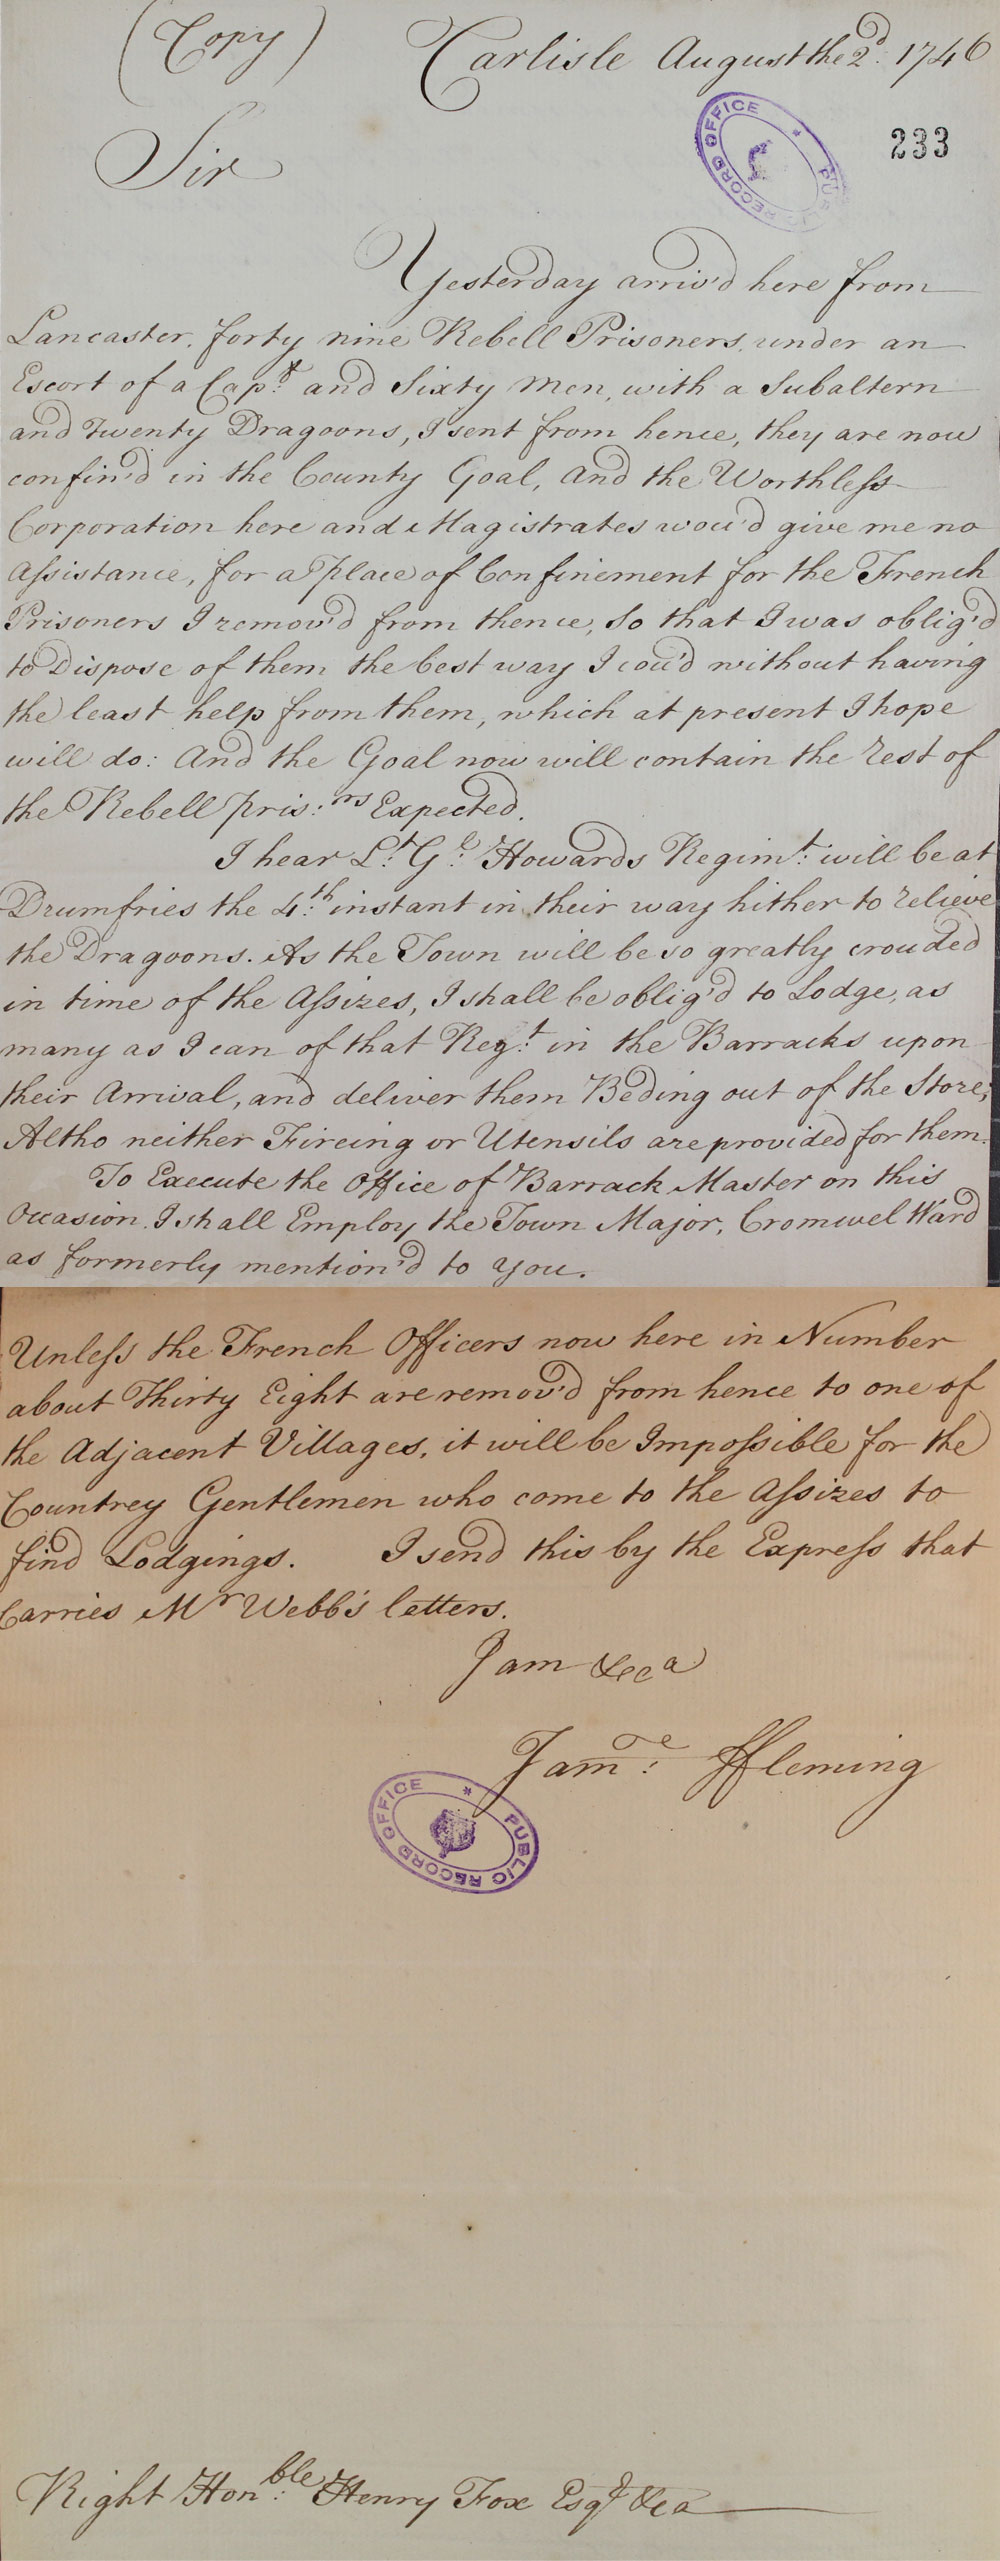 (Copy) Carlisle August the 2d. 1746
PUBLIC RECORD OFFICE *
233
Sir
Yesterday arriv'd here from
Lancaster. forty nine Rebell Prisoners, under an
Escort of a Capt: and Sixty Men, with a Subaltern
and Twenty Dragoons, I sent from hence, they are now
confin'd in the County Goal, And the Worthless
Corporation here and Magistrates wou'd give me no
Assistance, for a Place of Confinement for the French
Prisoners I remov'd from thence, So that I was oblig'd
to Dispose of them the best way I cou'd without having
the least help from them, which at present I hope
will do: And the Goal now will contain the rest of
the Rebell Pris:rs Expected.
I hear Lt: Gl: Howards Regimt: will be at
Drumfries the 4:th instant in their way hither to relieve
the Dragoons. As the Town will be so greatly crouded
in time of the Assizes, I shall be oblig'd to Lodge, as
many as I can of that Regt: in the Barracks upon
their Arrival, and deliver them Beding out of the Store,
Altho neither Fireing or Utensils are provided for them.
To Execute the Office of Barrack Master on this
Occasion. I shall Employ the Town Major, Cromwel Ward
as formerly mention'd to you.
Unless the French Officers now here in Number
about Thirty Eight are remov'd from hence to one of
the Adjacent Villages, it will be Impossible for the
Countrey Gentlemen who come to the Assizes to
find Lodgings. I send this by the Express that
Carries Mr Webb's letters.
I am &ca
Jame: ffleming
PUBLIC RECORD OFFICE *
Right Honble: Henry Fox Esqr &ca